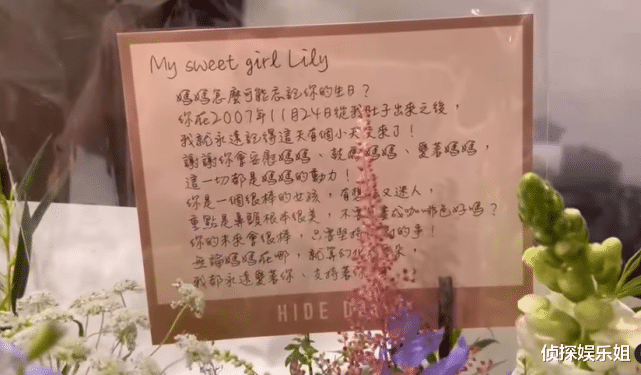 My sweet girl Lily
媽媽怎麼可能忘記你的生日？
你在2007年11月24日從我肚子出來之後，
我就永遠記得這天有個小天使來了！
謝謝你會安慰媽媽、鼓勵媽媽、愛著媽媽，
這一切都是媽媽的動力！
你是一個很棒的女孩，有想 又迷人，
重點是鼻頭根本很美，不 咖啡色好嗎？
你的未來會很棒，只要堅持 的事！
無論媽媽在哪，就算幻化
我都永遠愛著你、支持著你
HIDE D
侦探娱乐姐